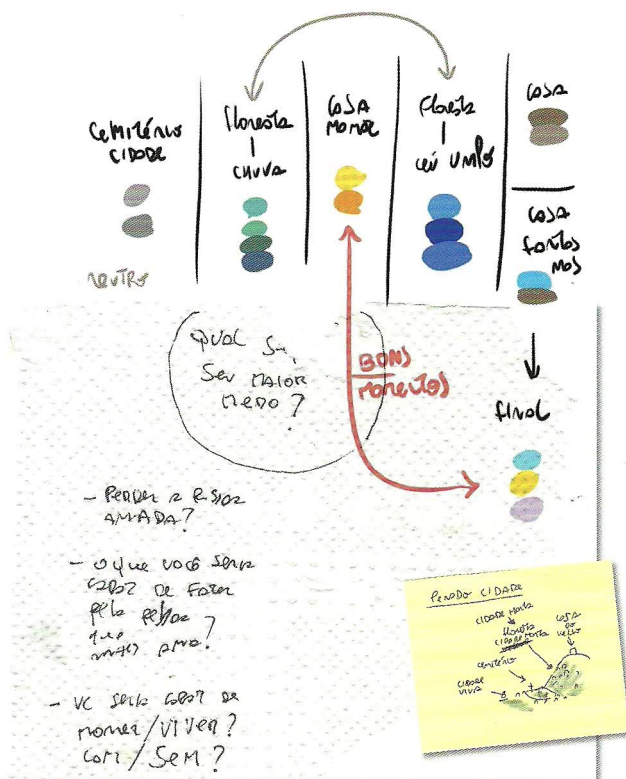 CEMITÉRIO
CIDADE
NEUTRO
floresta
|
CHUVA
CASA
floresta
|
céu limpo
CASA
CASA
fantas
mas
QUAL
SEU MAIOR
MEDO?
BONS
MOMENTOS
final
- PERDER A
AMADA?
- O que você seria
capaz de fazer
pela pessoa
que
mais ama?
- VC seria capaz de
morrer/VIVER?
com/SEM?
CIDADE
CIDADE MORTA
floresta
CASA
DO
VELHO
cemitério
CIDADE
VIVA